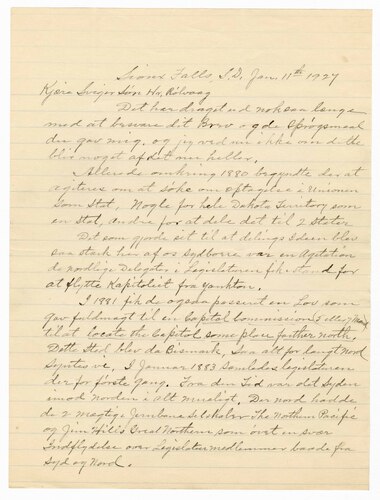 Sioux Falls, S.D, Jan. 11th 1927
Kjære Svigersøn Hr, Rölvaag
Det har draget ud noksaa længe
med at besvare dit Brev og de Spörgsmaal
du gav mig. og jeg ved nu ikke om dette
blir noget af det nu heller.
Allerede omkring 1880 begyndte der at
agiteres om at söke om optagelse i Unionen
som Stat. Nogle for hele Dakota Territory som
en Stat, andre for at dele det til 2 Stater
Det som gjorde sit til at delings Ideen blev
saa stærk her af os Sydboere var en Agitation
de nordlige Delegater i Legislaturen fik istand for
at flytte Kapitoliet fra Yankton.
I 1881 fik de ogsaa passeret en Lov som
gav fuldmagt til en Capitol Commission
til at locate the Capitol some place farther north.
Dette Sted blev da Bismark, Sva alt for langt Nord
Syntes vi. I Januar 1883 Samledes legislaturen
der for förste Gang. Fra den Tid var det Syden
imod Norden i alt muligt. Der nord havde
de 2 mægtige Jernbane Selskaber The Northern Pacific
og Jim Hill's Great Northern som övet en svær
Indflydelse over Legislatur medlemmer baade fra
Syd og Nord.